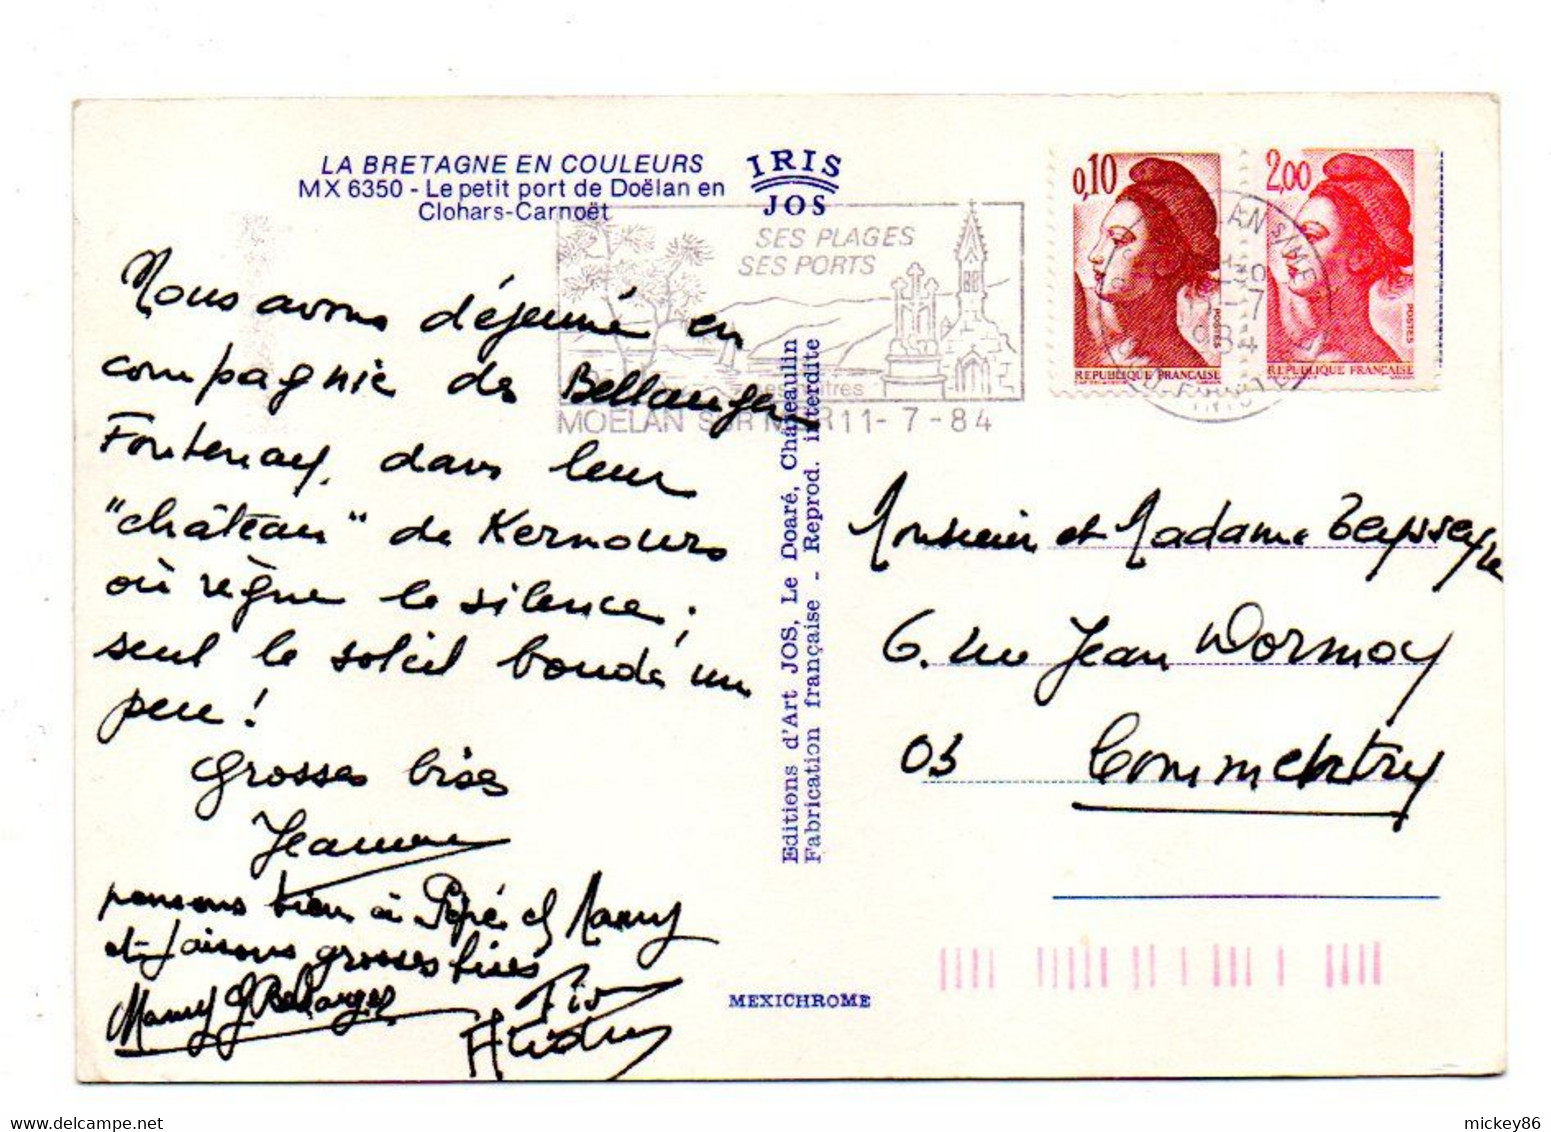 LA BRETAGNE EN COULEURS
MX 6350 - Le petit port de Doëlan en
Clohars-Carnoët
IRIS
JOS
SES PLAGES
SES PORTS
MOELAN SUR MER 11-7-84
0,10
POSTES
REPUBLIQUE FRANÇAISE
2,00
POSTES
REPUBLIQUE FRANÇAISE
Nous avons déjeuné en
compagnie de Bellanger
Fontenay, dans leur
"château" de Kernours
où règne le silence ;
seul le soleil boude un
peu !
Grosses bises
Jeanne
pensons bien à Pépé et Mamy
et faisons grosses bises
Mamy Bellanger
Editions d'Art JOS, Le Doaré, Châteaulin
Fabrication française - Reprod. interdite
Monsieur et Madame Teysseyre
6. rue Jean Dormoy
03 Commentry
MEXICHROME
mickey86